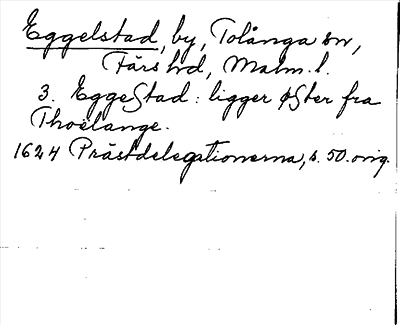 Eggelstad, by, Tolånga sn,
Färs hd, Malm. l.
3. Eggestad: ligger øster fra
Thoelange.
1624 Prästdelegationerna, s. 50. orig.